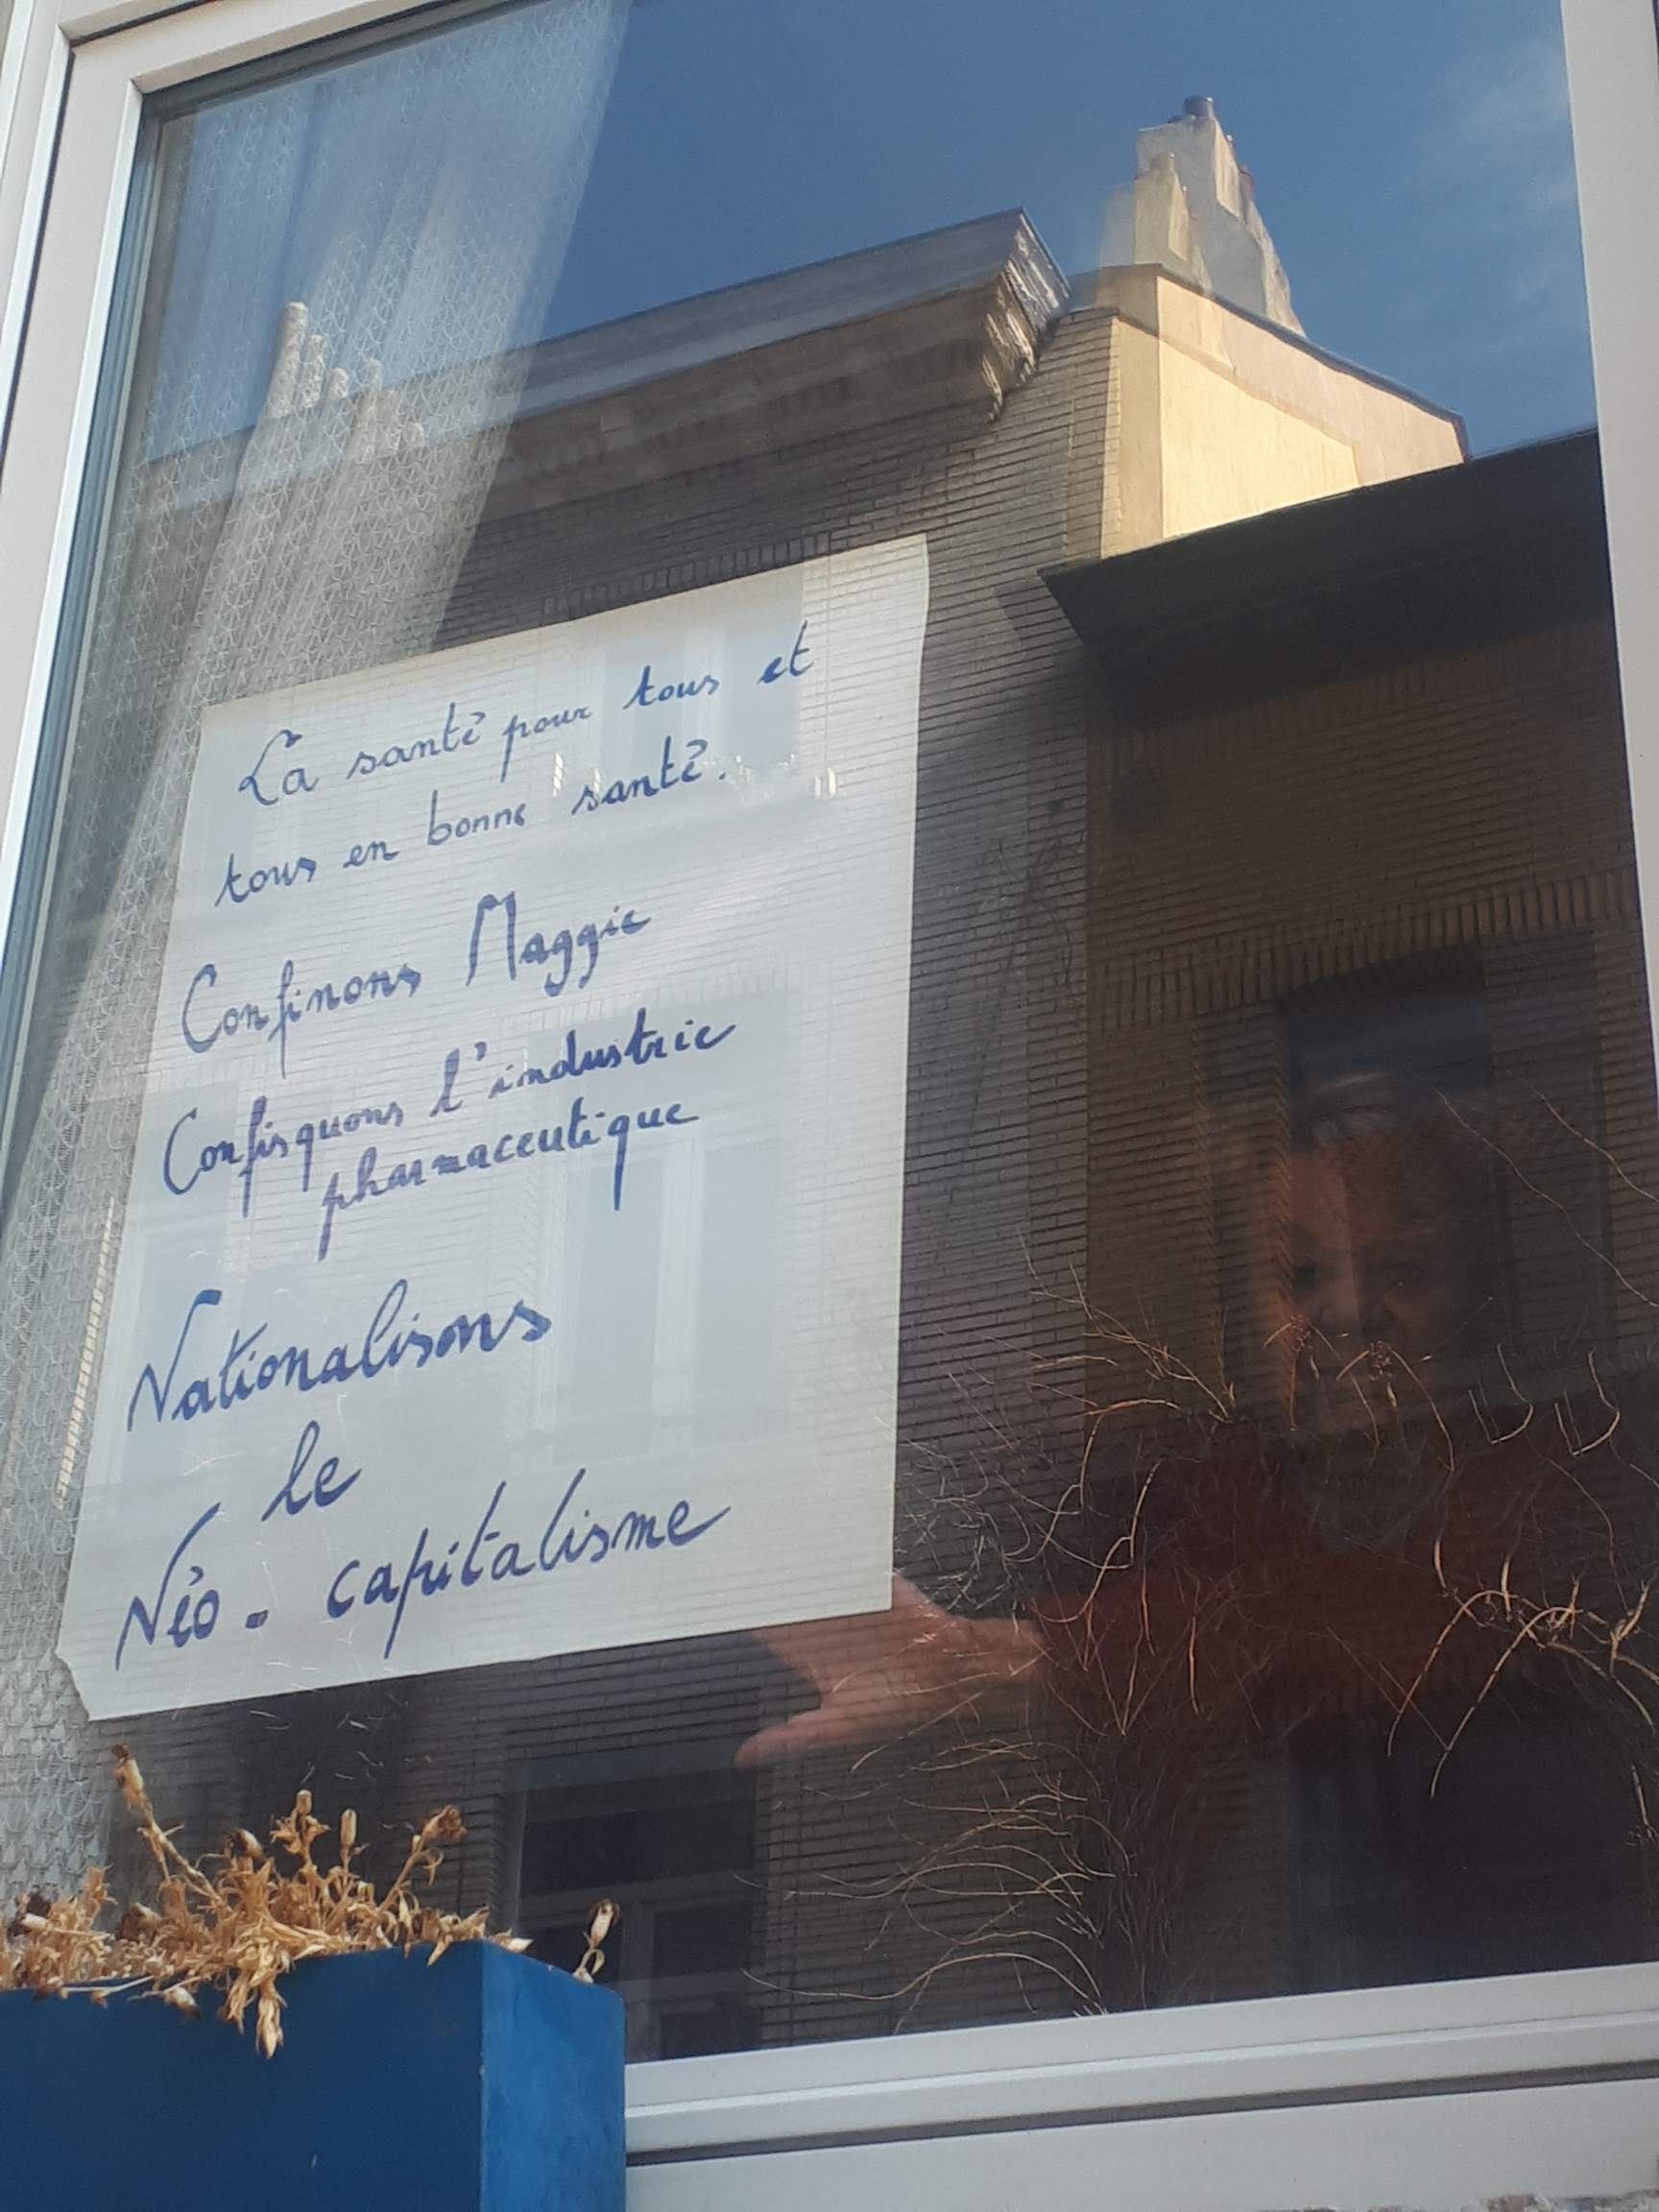 La santé pour tous et
tous en bonne santé.
Confinons Maggie
Confisquons l'industrie
pharmaceutique
Nationalisons
le
Néo-capitalisme